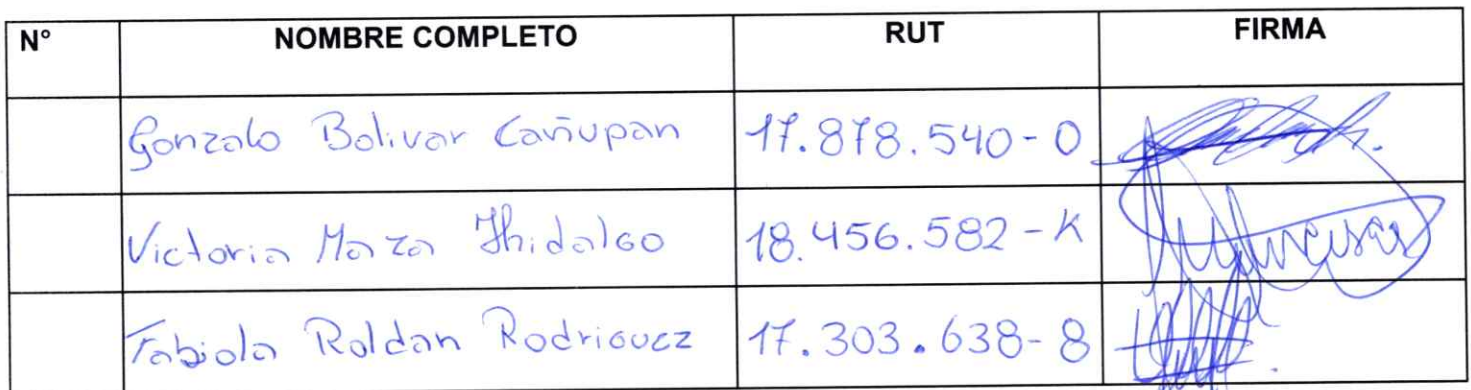 N° NOMBRE COMPLETO RUT FIRMA
Gonzalo Bolivar Cañupan 17.878.540-0
Victoria Manza Hidalgo 18.456.582-K
Fabiola Roldan Rodriguez 17.303.638-8